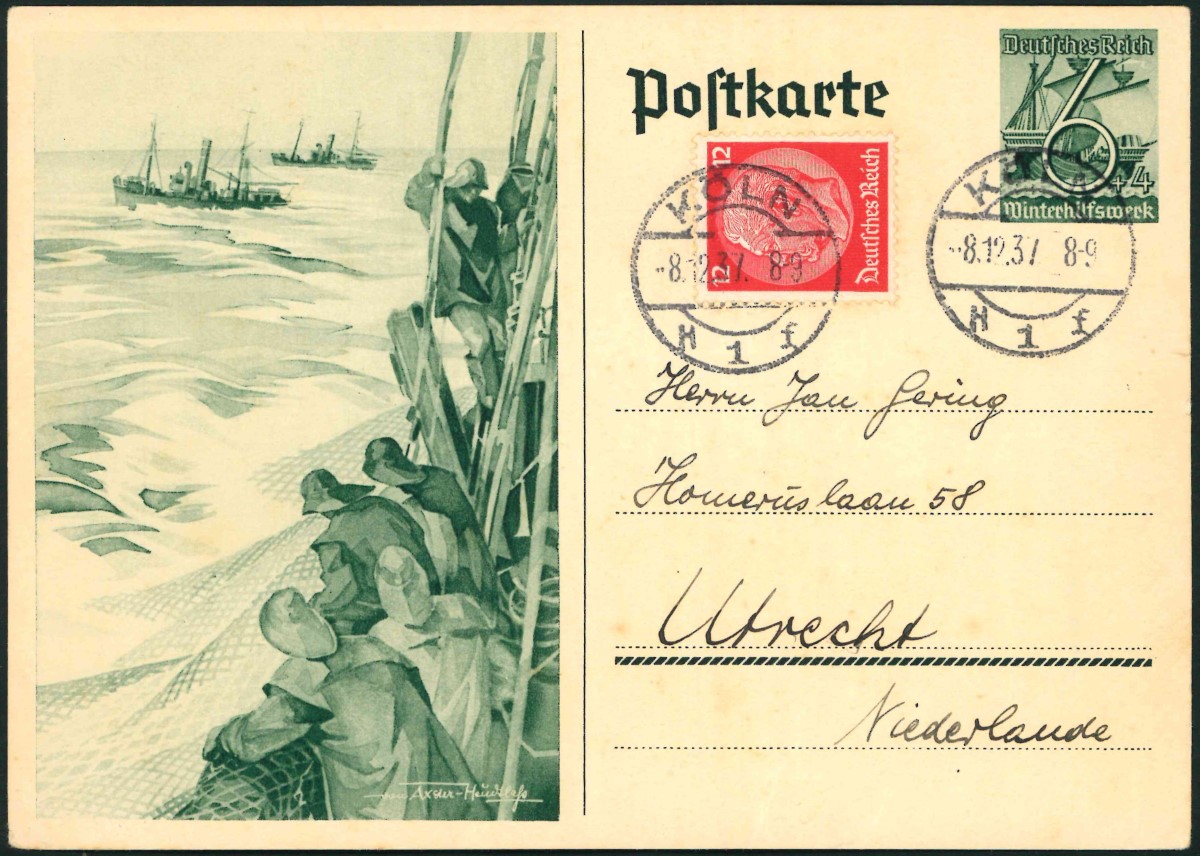 Postkarte
Deutsches Reich
6
+4
Winterhilfswerk
12
12
Deutsches Reich
KÖLN
-8.12.37. 8-9
1 f
KÖLN
-8.12.37 8-9
1 f
Herrn Jan Gering
Homeruslaan 58
Utrecht
Niederlande
von Axster-Heudtlaß